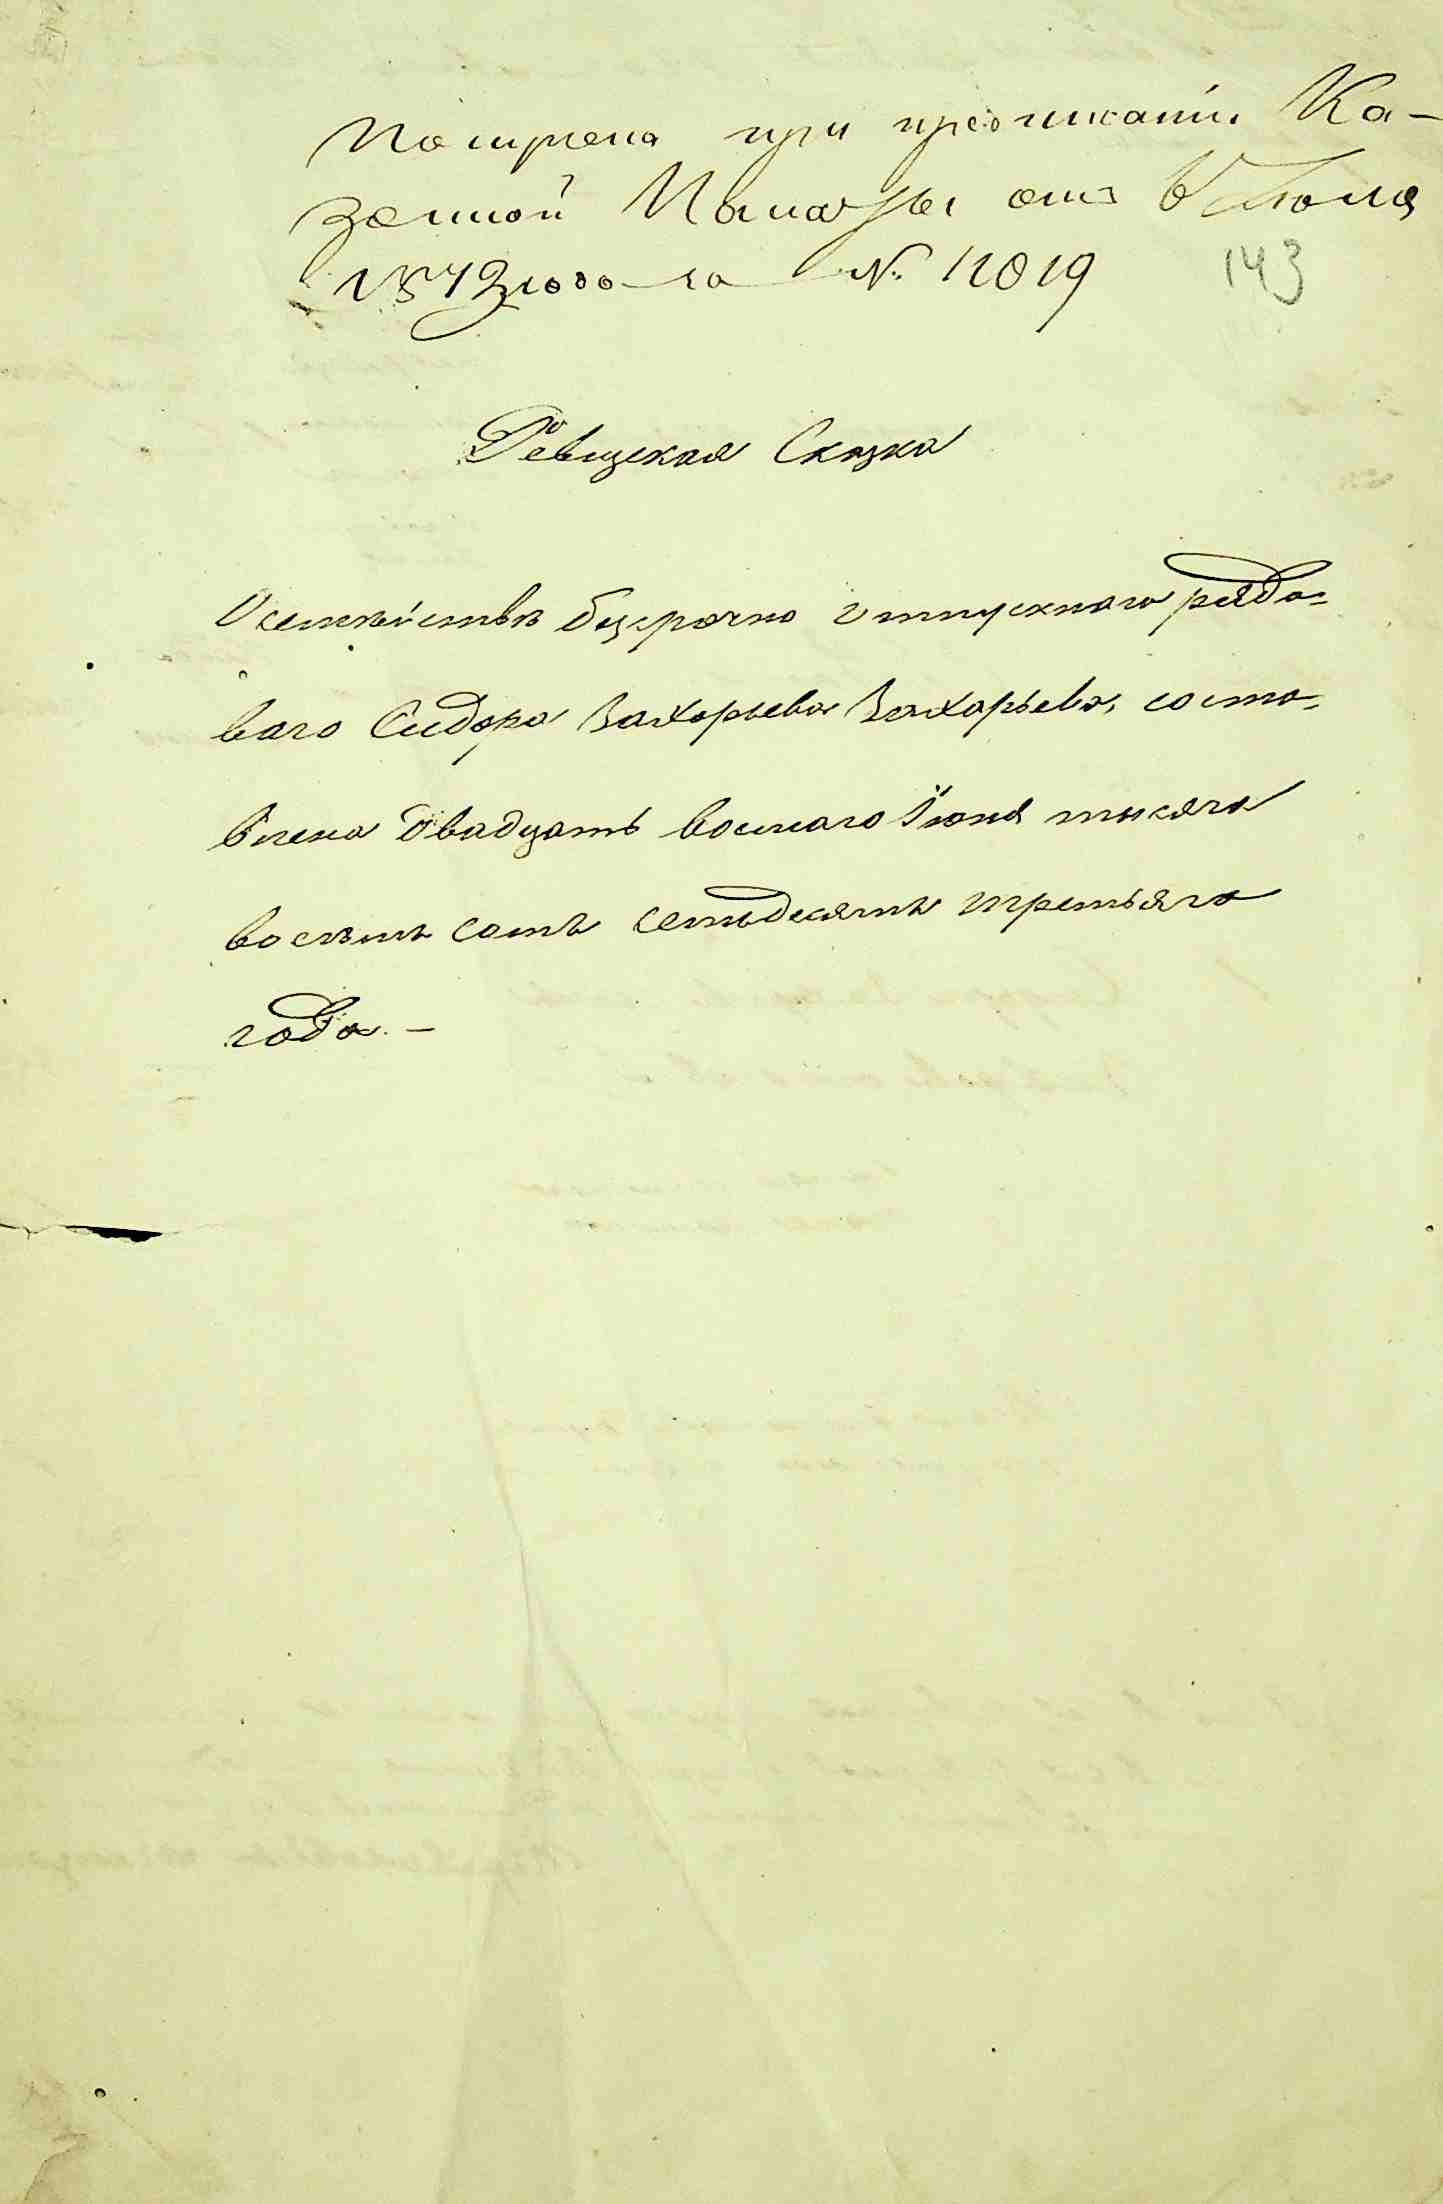 Получена при предписании Ка-
зенной Палаты отъ 6 Юля
1873 года за № 11019
143
Ревизская Сказка
О семействѣ безсрочно отпускнаго рядо-
ваго Сидора Захарьева Захарьева, соста-
влена двадцать восмаго Іюня тысяча
восемь сотъ семьдесятъ третьяго
года. –